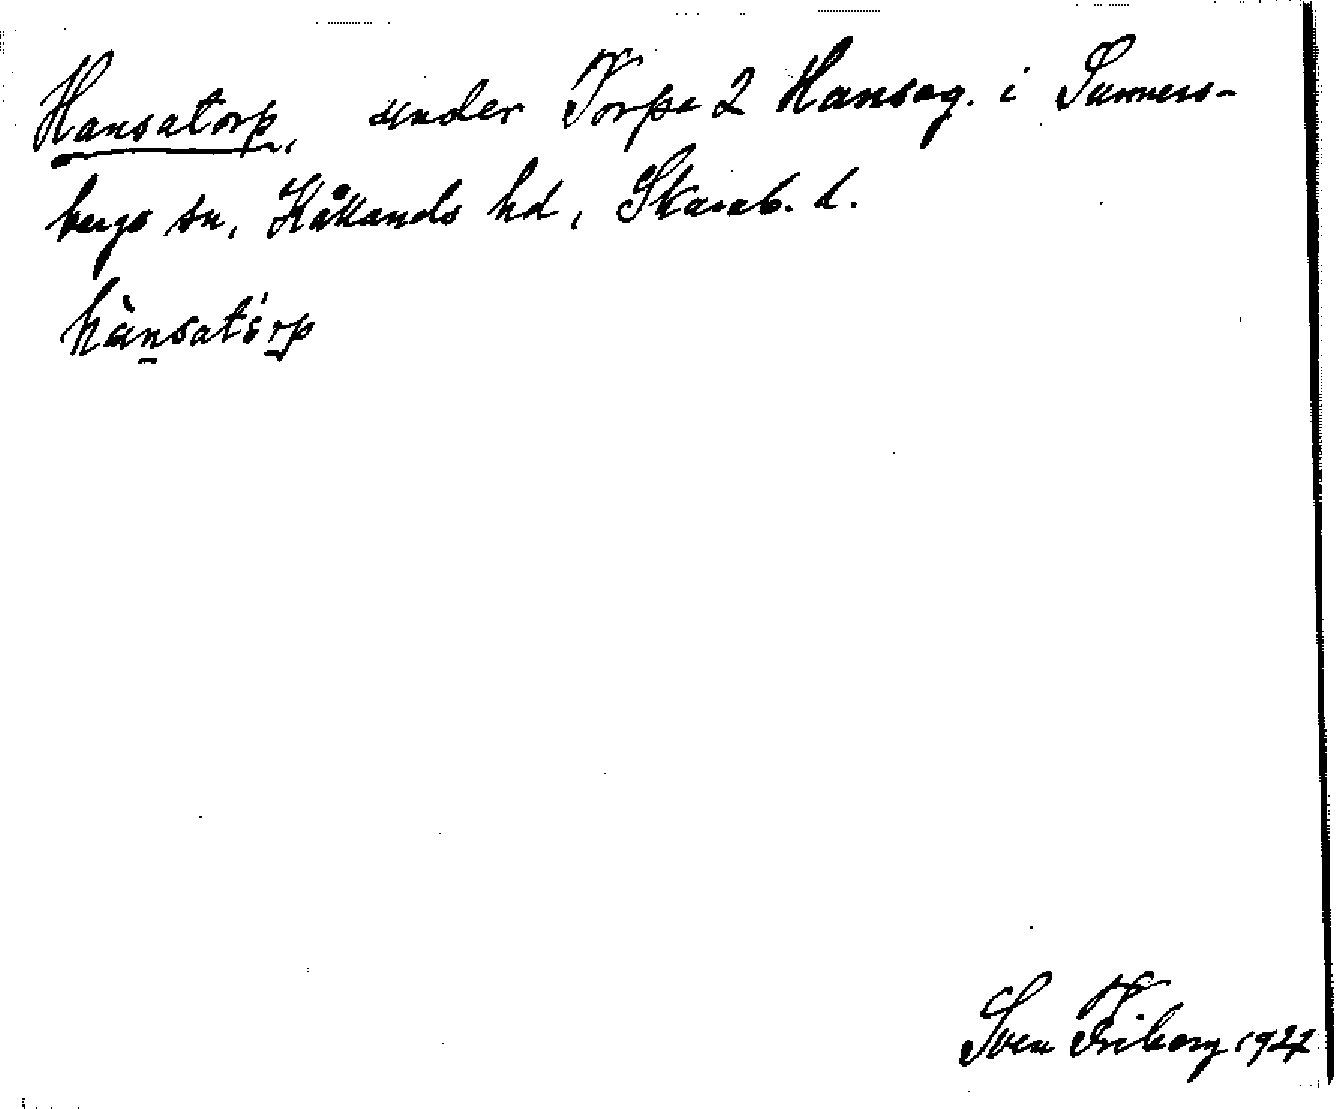 Hansatorp, under Torpa 2 Hansag. i Sunners-
bergs sn, Kållands hd, Skarab. l.
hànsatórp
Sven Friberg 1927